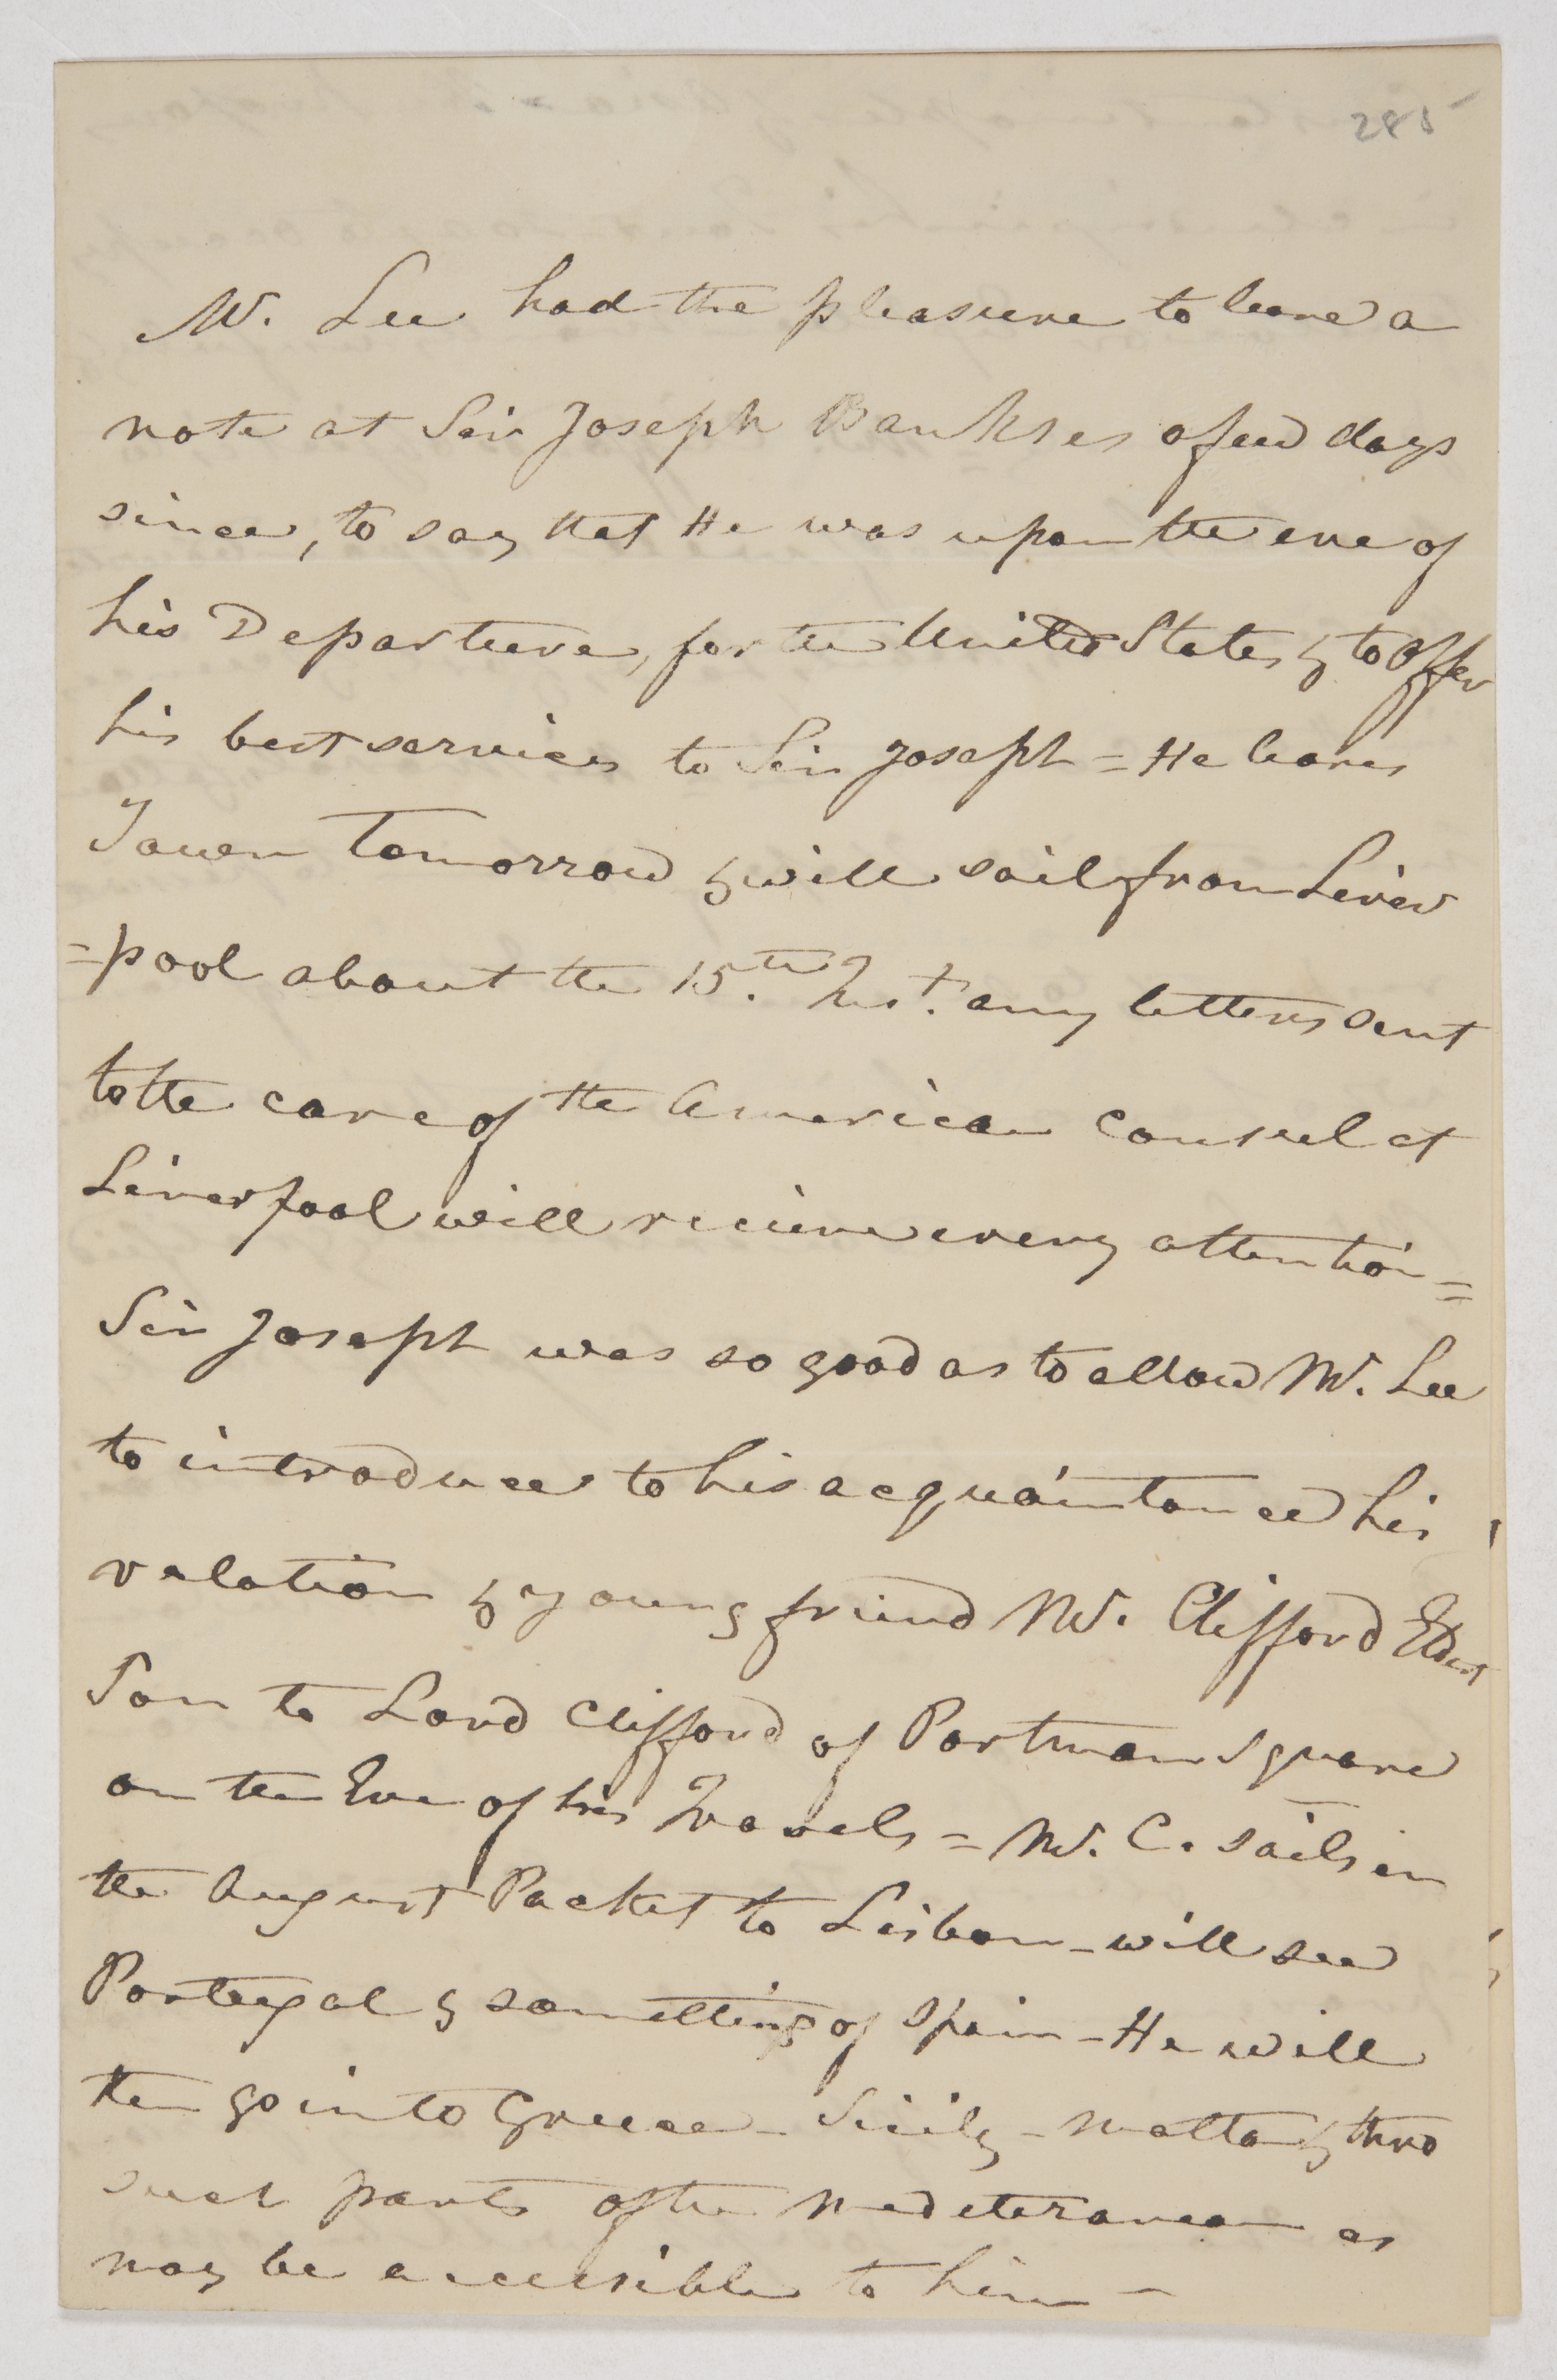 285
Mr. Lee had the pleasure to leave a
note at Sir Joseph Bankses a few days
since, to say that He was upon the eve of
his Departure, for the United States & to offer
his best services to Sir Joseph = He leaves
Town tomorrow & will sail from Liver
=pool about the 15.th Inst. any letters sent
to the care of the American Consul at
Liverpool will recieve every attention =
Sir Joseph was so good as to allow Mr. Lee
to introduce to his acquaintance his
relation & young friend Mr. Clifford Eldest
Son to Lord Clifford of Portman Square
on the Eve of his Travels = Mr. C. sails in
the August Packet to Lisbon - will see
Portugal & something of Spain - He will
then go into Greece - Sicily - Malta & thro
such parts of the Mediteranean as
may be accessible to him -